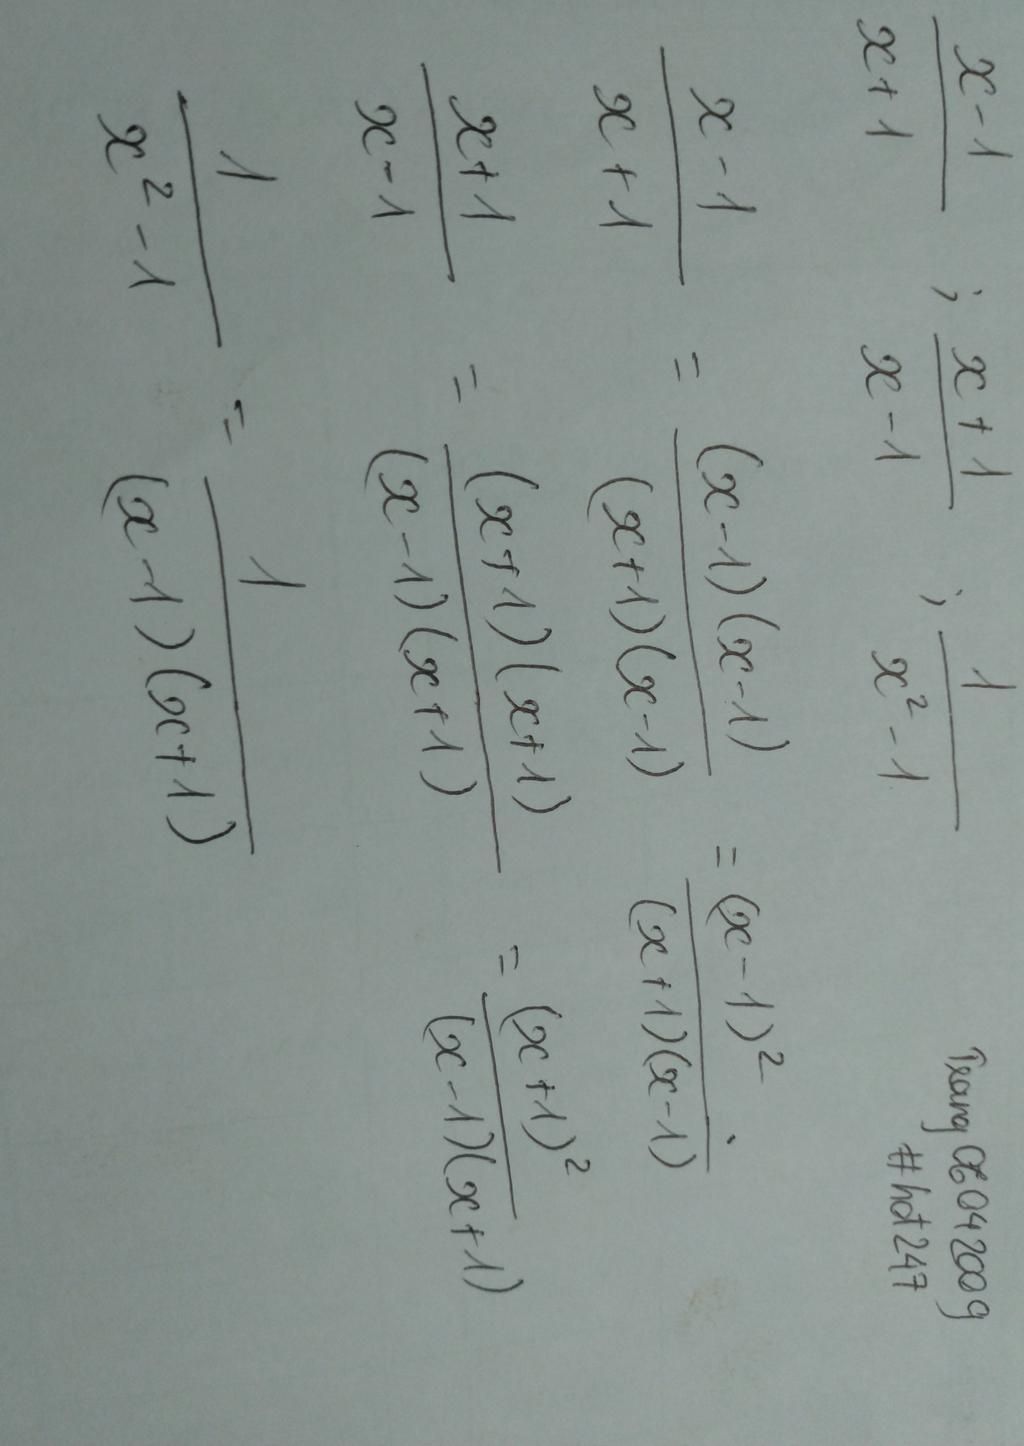 (x-1)/(x+1) ; (x+1)/(x-1) ; 1/(x²-1)
Trang06042009
#hđ247
(x-1)/(x+1) = (x-1)(x-1)/(x+1)(x-1) = (x-1)²/(x+1)(x-1) .
(x+1)/(x-1) = (x+1)(x+1)/(x-1)(x+1) = (x+1)²/(x-1)(x+1)
1/(x²-1) = 1/(x-1)(x+1)